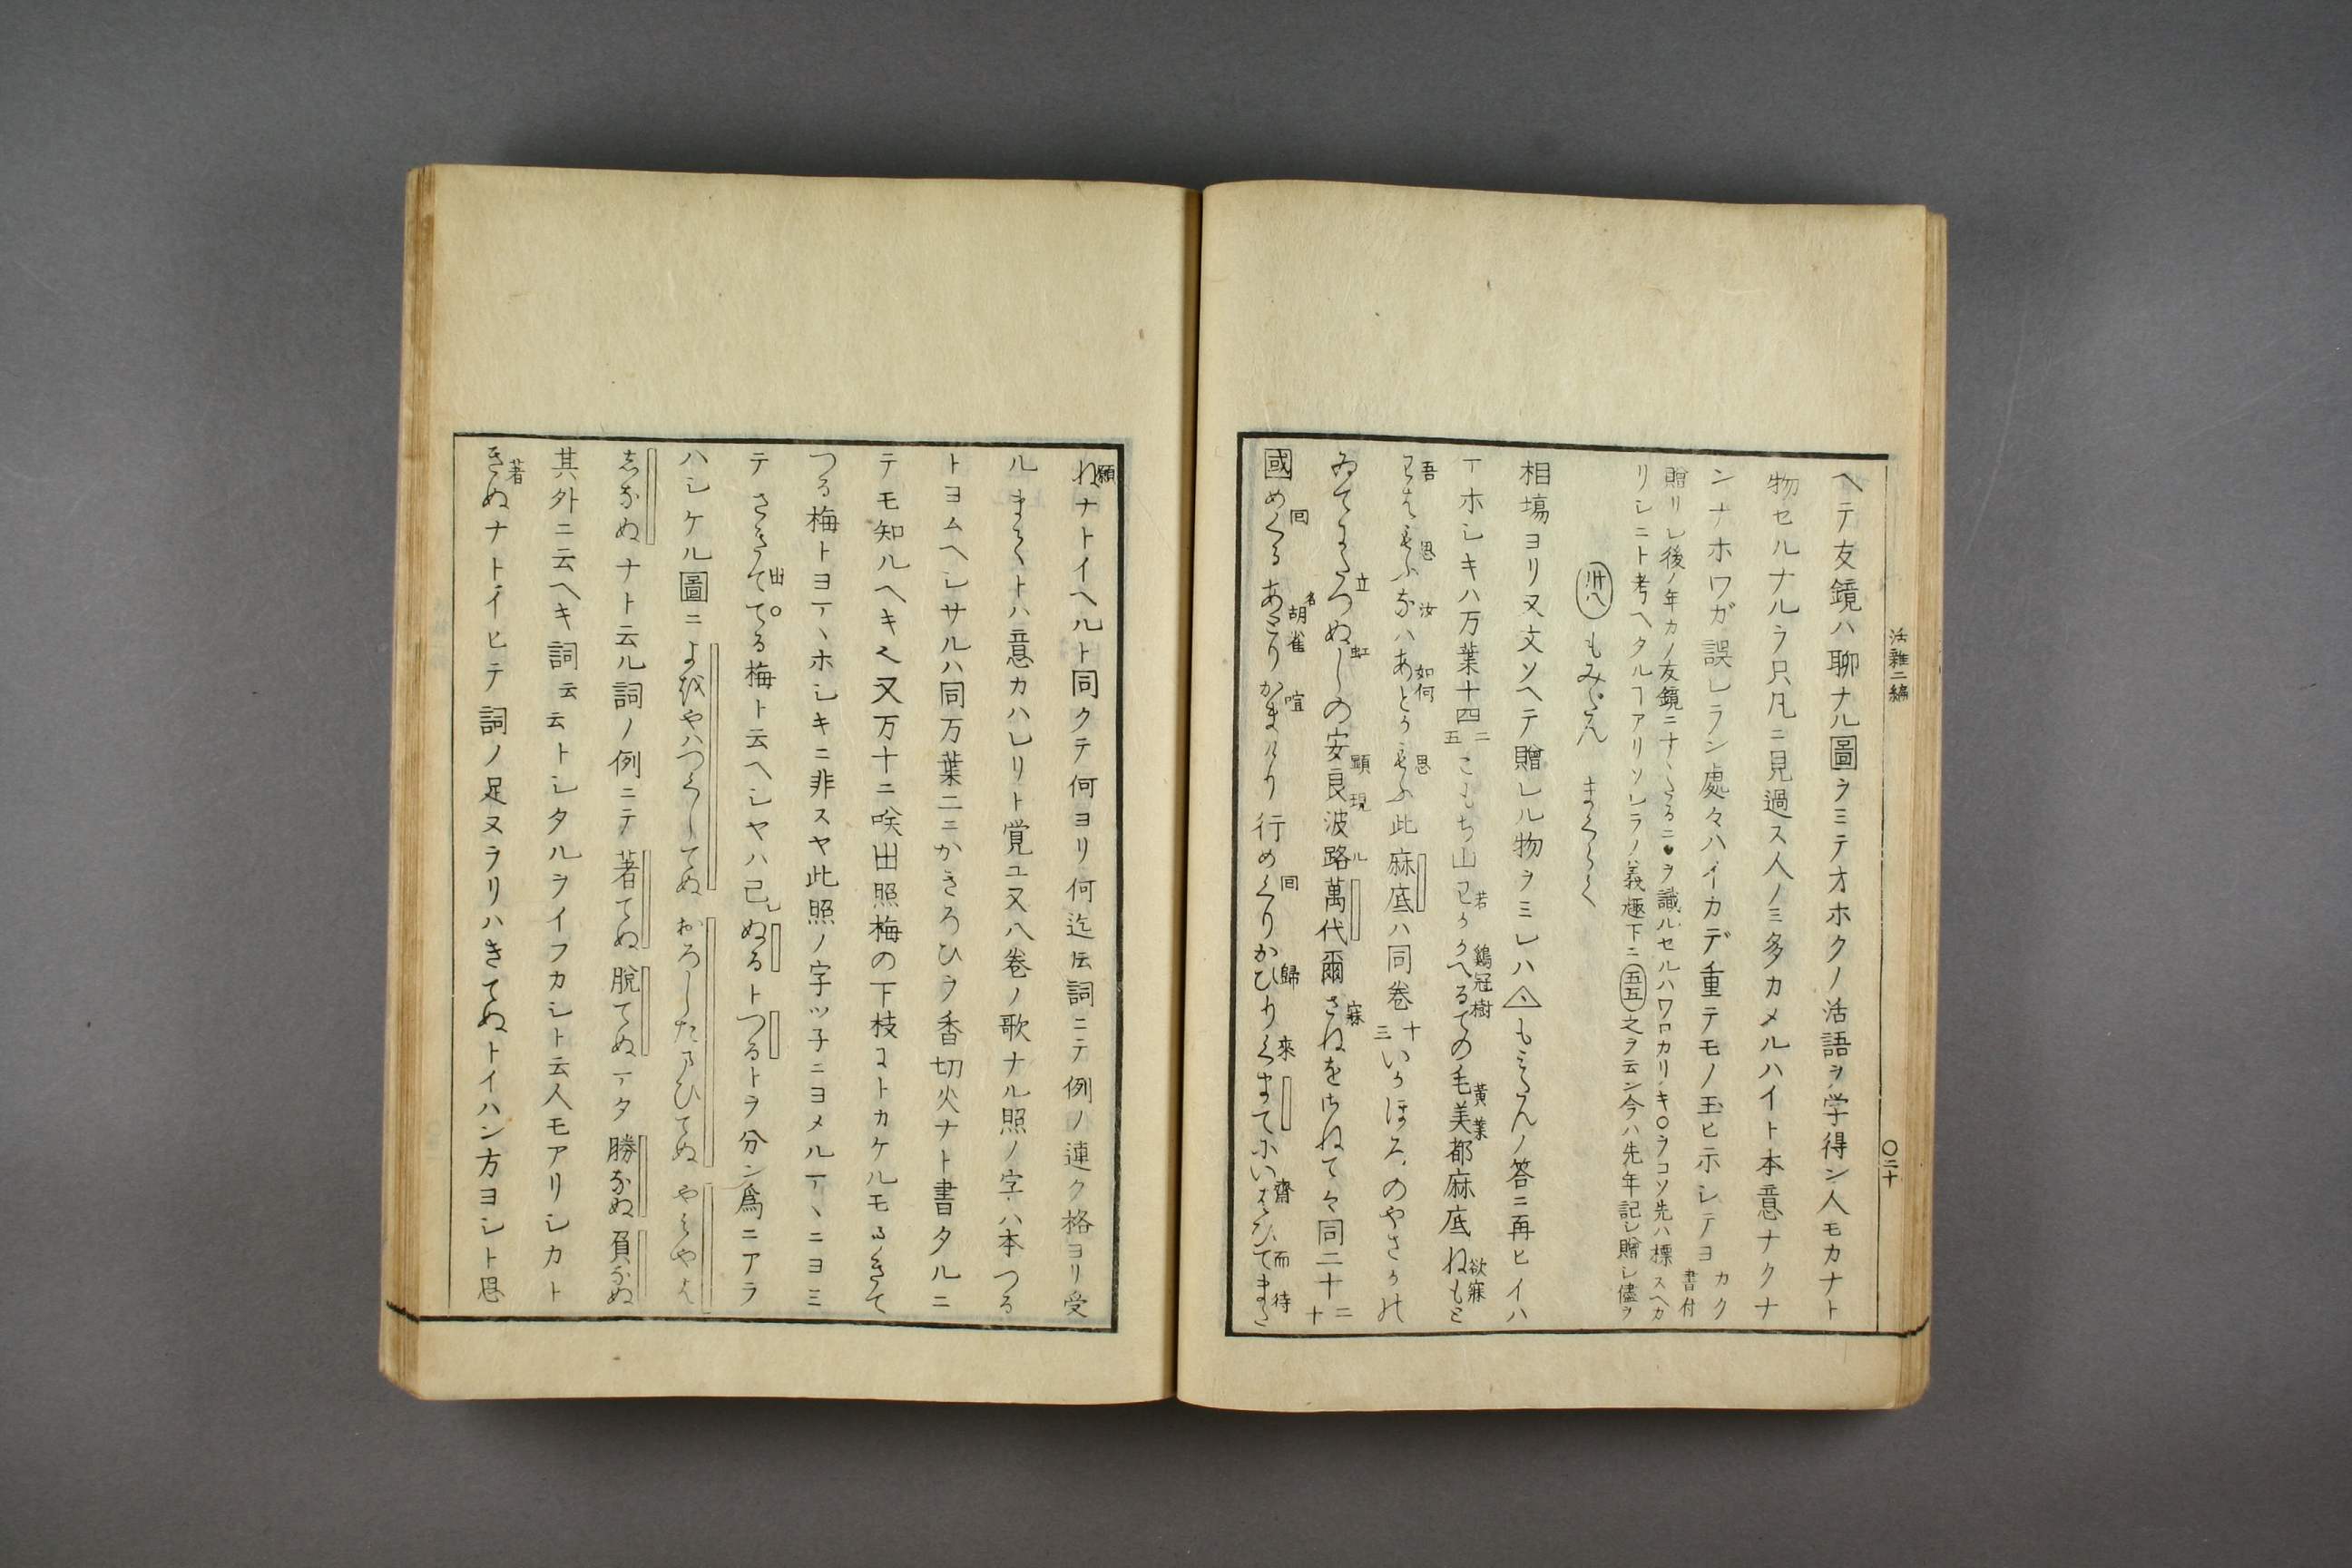 活雜二編
〇二十
ヘテ友鏡ハ聊ナル圖ヲミテオホクノ活語ヲ学得ン人モカナト
物セルナルヲ只凡ニ見過ス人ノミ多カメルハイト本意ナクナ
ンナホワガ誤レラン處々ハイカデ重テモノ玉ヒ示シテヨ カク書付
贈リシ後ノ年カノ友鏡ニ ヲ識ルセルハワロカリキ〇ヲコソ先ハ標スヘカ
リシニト考ヘタルヿアリソレラノ義極下ニ五五之ヲ云ン今ハ先年記シ贈レ儘ヲ
卅八 もみ まくらく
相塲ヨリ又文ソヘテ贈レル物ヲミレハ もみ ノ答ニ再ヒイハ
ヿホシキハ万葉十四 二五 こもち山 わかかへるての毛美都麻底ねもと 若 鷄冠樹 黄葉 欲寐
わはもふなハあとかもふ此麻底ハ同卷 十三 いかほろのやさかの 吾 思 汝 如何 思
ゐてにたつぬしの安良波路萬代爾さねをさねてく同二十 二十 立 虹 顕現 ル 寐
國めくるあとりかまけり行めくりかひりくまてにいはひてまた 囘 名胡雀 喧 囘 歸 來 齋 而 待
ねナトイヘルト同クテ何ヨリ何迄云詞ニテ例ノ連ク格ヨリ受 願
ル まくトハ意カハレリト覚ユ又八卷ノ歌ナル照ノ字ハ本つる
トヨムヘシサルハ同万葉二ニかきろひヲ香切火ナト書タルニ
テモ知ルヘキ又万十ニ咲出照梅の下枝にトカケルモ さきて
つる梅トヨヿヽホシキニ非スヤ此照ノ字ツ子ニヨメルヿヽニヨミ
テ さきててる梅ト云ヘシヤハ已ぬるトつるトヲ分ン爲ニアラ 出
ハシケル圖ニ よ やハつくしてぬ おろしたまひてぬ やみやは
志なぬナト云ル詞ノ例ニテ著てぬ脱てぬヿタ勝なぬ負なぬ
其外ニ云ヘキ詞云云トシタルヲイフカシト云人モアリシカト
きぬナトイヒテ詞ノ足ヌラリハきてぬトイハン方ヨシト思 著